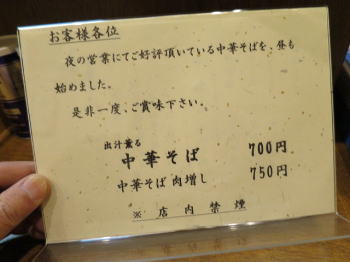 お客様各位
夜の営業にてご好評頂いている中華そばを、昼も
始めました。
是非一度、ご賞味下さい。
出汁薫る
中華そば 700円
中華そば 肉増し 750円
※ 店内禁煙